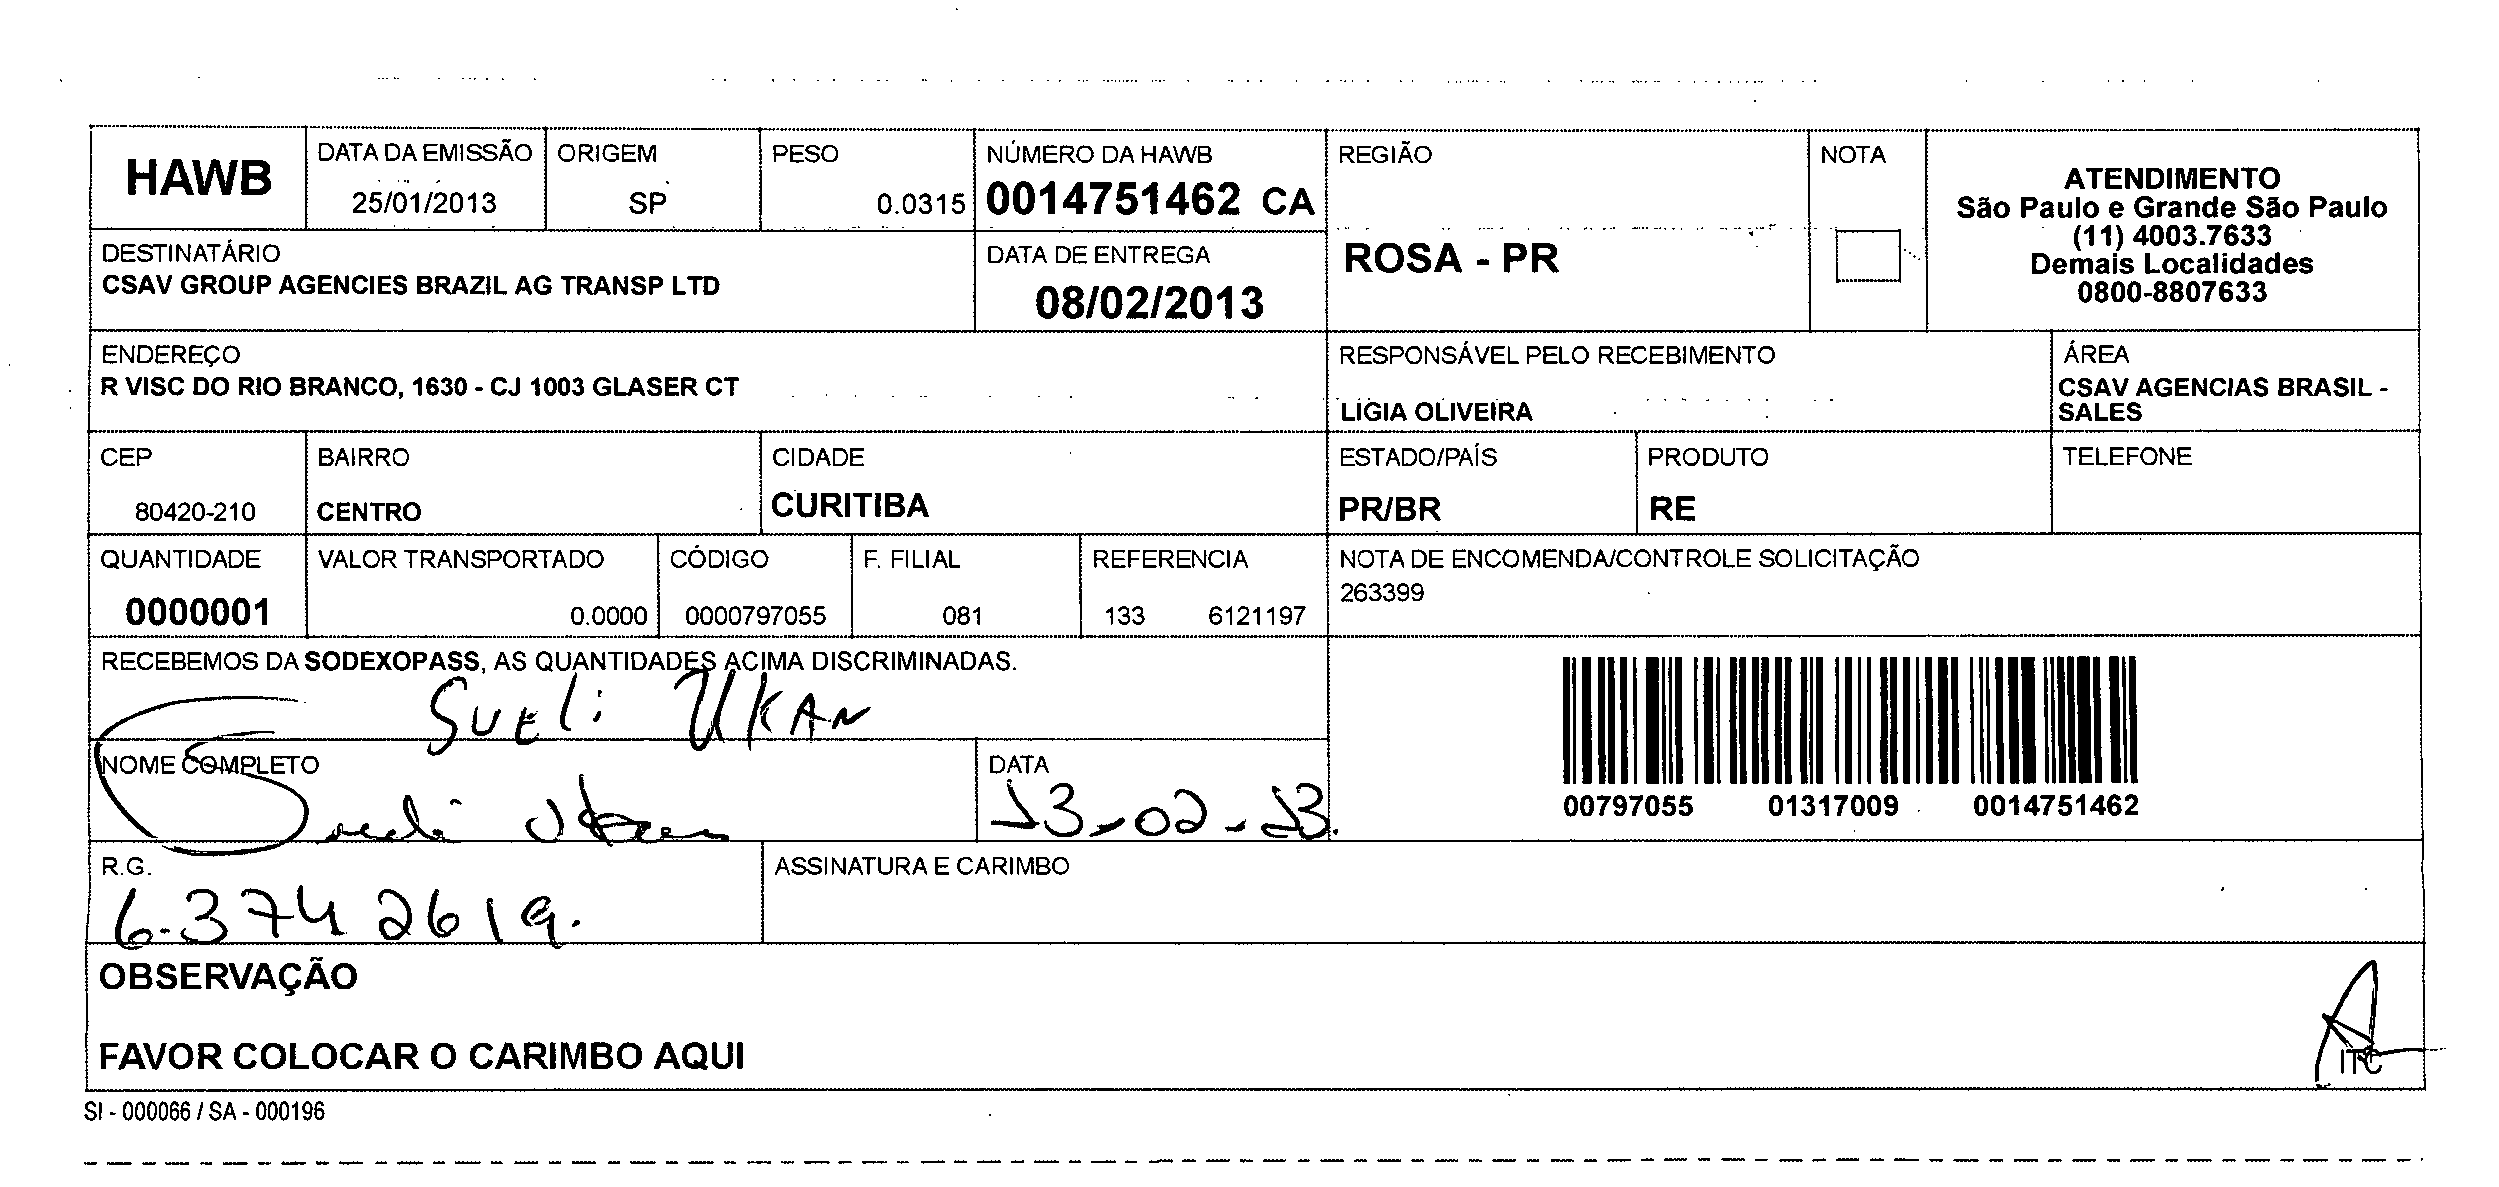 HAWB
DATA DA EMISSÃO
25/01/2013
ORIGEM
SP
PESO
0.0315
NÚMERO DA HAWB
0014751462 CA
REGIÃO
ROSA - PR
NOTA
ATENDIMENTO
São Paulo e Grande São Paulo
(11) 4003.7633
Demais Localidades
0800-8807633
DESTINATÁRIO
CSAV GROUP AGENCIES BRAZIL AG TRANSP LTD
DATA DE ENTREGA
08/02/2013
ENDEREÇO
R VISC DO RIO BRANCO, 1630 - CJ 1003 GLASER CT
RESPONSÁVEL PELO RECEBIMENTO
LIGIA OLIVEIRA
ÁREA
CSAV AGENCIAS BRASIL -
SALES
CEP
80420-210
BAIRRO
CENTRO
CIDADE
CURITIBA
ESTADO/PAÍS
PR/BR
PRODUTO
RE
TELEFONE
QUANTIDADE
0000001
VALOR TRANSPORTADO
0.0000
CÓDIGO
0000797055
F. FILIAL
081
REFERENCIA
133 6121197
NOTA DE ENCOMENDA/CONTROLE SOLICITAÇÃO
263399
RECEBEMOS DA SODEXOPASS, AS QUANTIDADES ACIMA DISCRIMINADAS.
Sueli UKAN
NOME COMPLETO
DATA
13-02-13.
00797055 01317009 0014751462
R.G.
6.374 261 9.
ASSINATURA E CARIMBO
OBSERVAÇÃO
FAVOR COLOCAR O CARIMBO AQUI
ITC
SI - 000066 / SA - 000196